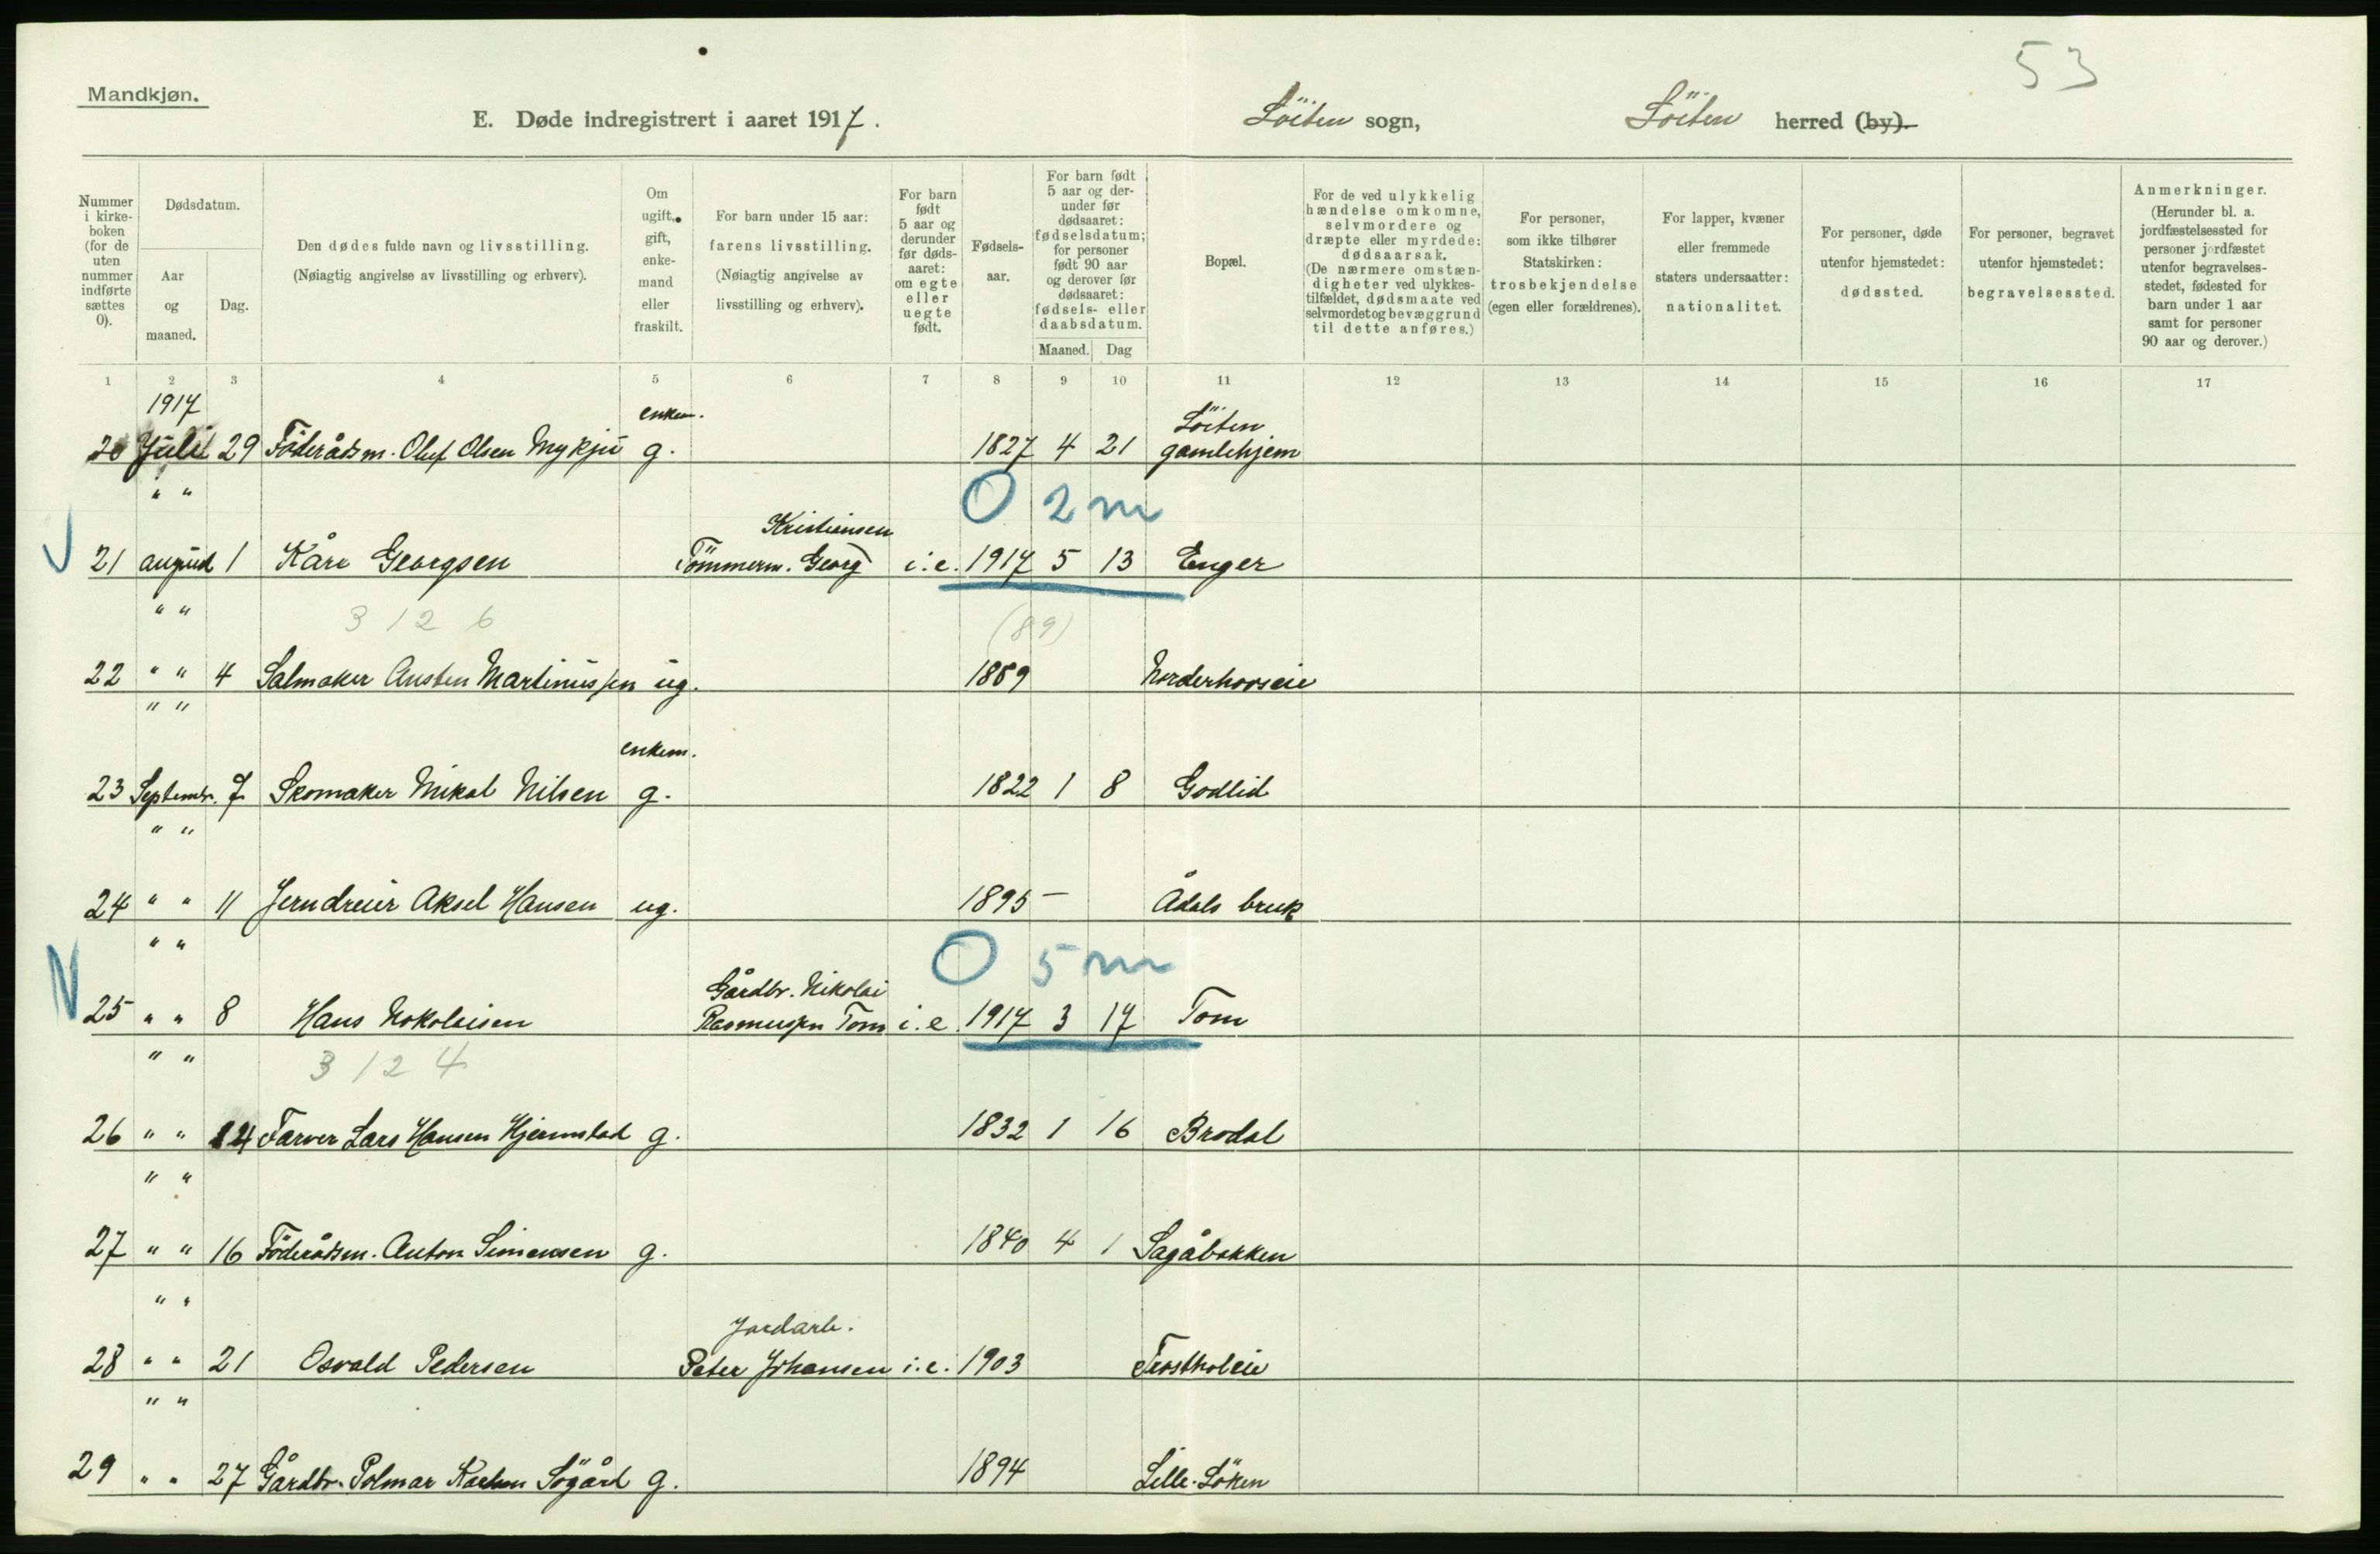 53
Mandkjøn.
E. Døde indregistrert i aaret 1917. Löiten sogn, Löiten herred (by).
Nummer i kirke-boken (for de uten nummer indførte sættes 0).
Dødsdatum.
Aar og maaned.
Dag.
Den dødes fulde navn og livsstilling. (Nøiagtig angivelse av livsstilling og erhverv).
Om ugift, gift, enke-mand eller fraskilt.
For barn under 15 aar: farens livsstilling. (Nøiagtig angivelse av livsstilling og erhverv).
For barn født 5 aar og derunder før døds-aaret: om egte eller uegte født.
Fødsels-aar.
For barn født 5 aar og der-under før dødsaaret: fødselsdatum; for personer født 90 aar og derover før dødsaaret: fødsels- eller daabsdatum.
Maaned. Dag
Bopæl.
For de ved ulykkelig hændelse omkomne, selvmordere og dræpte eller myrdede: dødsaarsak. (De nærmere omstæn-digheter ved ulykkes-tilfældet, dødsmaate ved selvmordet og bevæggrund til dette anføres.)
For personer, som ikke tilhører Statskirken: trosbekjendelse (egen eller forældrenes).
For lapper, kvæner eller fremmede staters undersaatter: nationalitet.
For personer, døde utenfor hjemstedet: dødssted.
For personer, begravet utenfor hjemstedet: begravelsessted.
Anmerkninger. (Herunder bl. a. jordfæstelsessted for personer jordfæstet utenfor begravelses-stedet, fødested for barn under 1 aar samt for personer 90 aar og derover.)
1 2 3 4 5 6 7 8 9 10 11 12 13 14 15 16 17
1917 enkem. Löiten
20 Juli 29 Föderådsm. Oluf Olsen Mykju g. 1827 4 21 gamlehjem
" " 0 2 m
Kristiansen
21 august 1 Kåre Georgsen Tömmerm. Georg i.e. 1917 5 13 Enger
" " 3 12 6 (89)
22 " " 4 Salmaker Austen Martinussen ug. 1889 Norderhovseie
" "
enkem.
23 Septembr. 7 Skomaker Mikal Nilsen g. 1822 1 8 Godlid
" "
24 " " 11 Jerndreier Aksel Hansen ug. 1895 – Ådals bruk
" " 0 5 m
Gårdbr. Nikolai
25 " " 8 Hans Nokolaisen Rasmussen Tom i.e 1917 3 17 Tom
" " 3 12 4
26 " " 14 Farver Lars Hansen Hjermstad g. 1832 1 16 Brodal
" "
27 " " 16 Föderådsm. Anton Simensen g. 1840 4 1 Sagåbakken
" "
Jordarb.
28 " " 21 Osvald Pedersen Peter Johansen i.e. 1903 Trostholeie
" "
29 " " 27 Gårdbr. Polmar Karlsen Sögård g. 1894 Lille-Löken